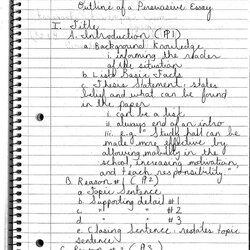 Outline of a Persuasive Essay
I. Title
A. Introduction (¶1)
a. Background Knowledge
i. informing the reader
of the situation
b. List Basic Facts
c. Thesis Statement: states
belief and what can be found
in the paper
i. can be a list
ii. always end of intro
iii. e.g. "Study hall can be
made more effective by
allowing mobility in the
school, increasing motivation
and teach responsibility"
B. Reason #1 (¶2)
a. Topic Sentence
b. Supporting detail #1
c. " " #2
d. " " #3
e. Closing Sentence: restates topic
sentence
C. Reason #2 (¶3)